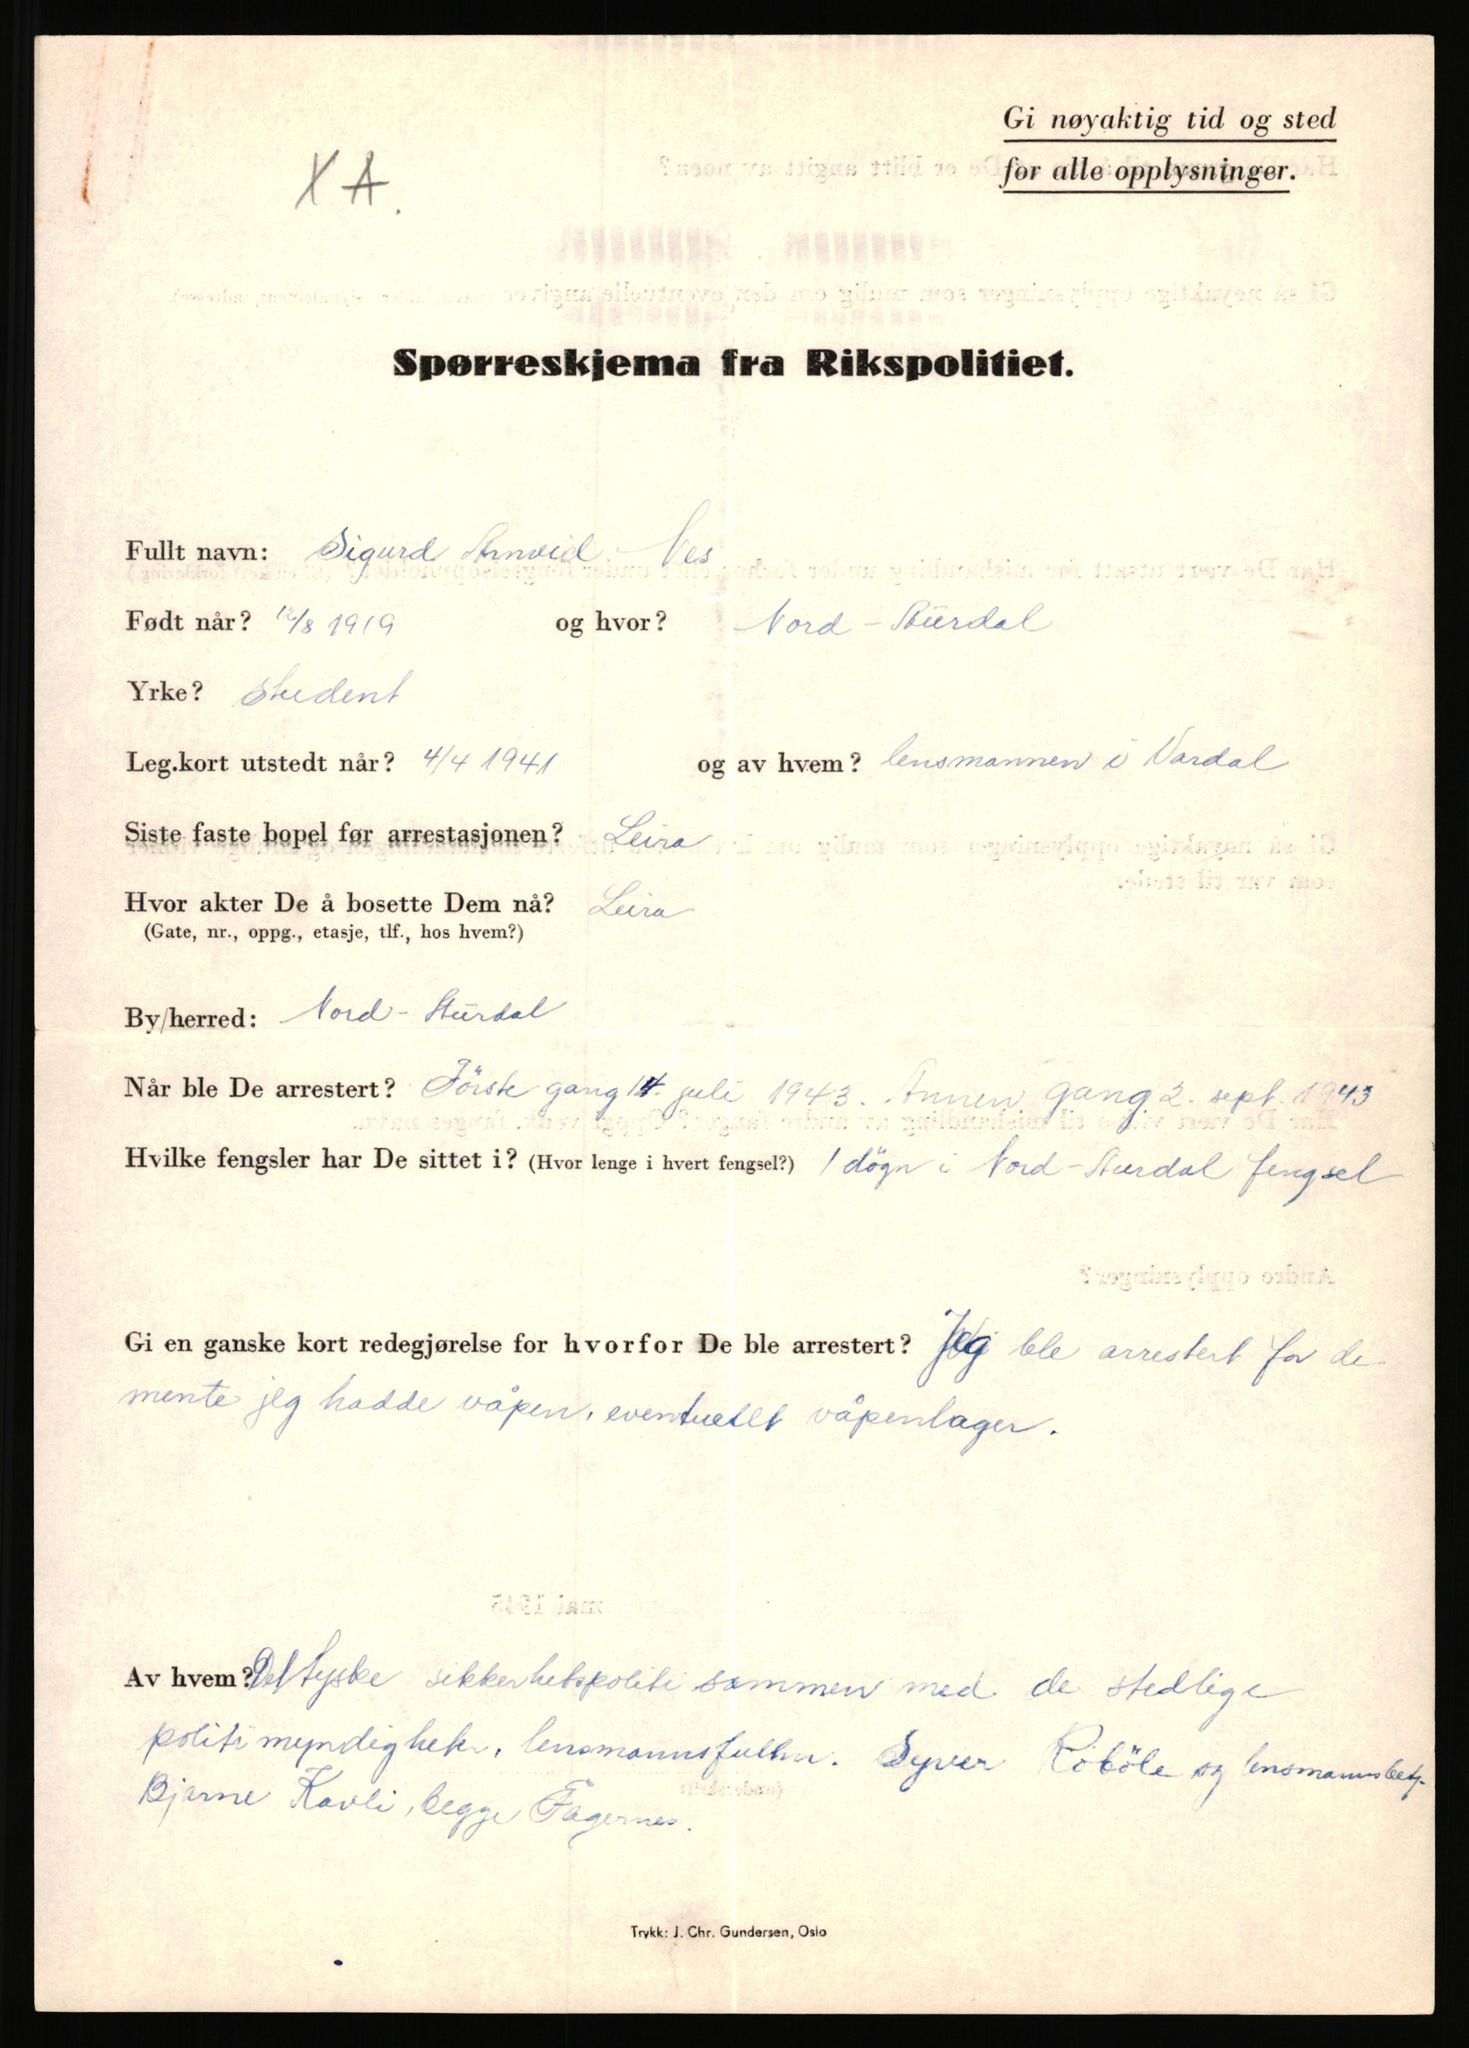 Gi nøyaktig tid og sted
for alle opplysninger.
X A.
Spørreskjema fra Rikspolitiet.
Fullt navn: Sigurd Arnvid Nes
Født når? 12/8 1919 og hvor? Nord-Aurdal
Yrke? Student
Leg.kort utstedt når? 4/4 1941 og av hvem? lensmannen i Vardal
Siste faste bopel før arrestasjonen? Leira
Hvor akter De å bosette Dem nå? Leira
(Gate, nr., oppg., etasje, tlf., hos hvem?)
By/herred: Nord-Aurdal
Når ble De arrestert? Förste gang 14. juli 1943. Annen gang 2. sept. 1943
Hvilke fengsler har De sittet i? (Hvor lenge i hvert fengsel?) 1 dögn i Nord-Aurdal fengsel
Gi en ganske kort redegjørelse for hvorfor De ble arrestert? Jeg ble arrestert for de
mente jeg hadde våpen, eventuellt våpenlager.
Av hvem? Det tyske sikkerhetspoliti sammen med de stedlige
politimyndigheter, lensmannsfullm. Syver Röböle og lensmannsbetj.
Bjarne Kavli, begge Fagernes.
Trykk: J. Chr. Gundersen, Oslo